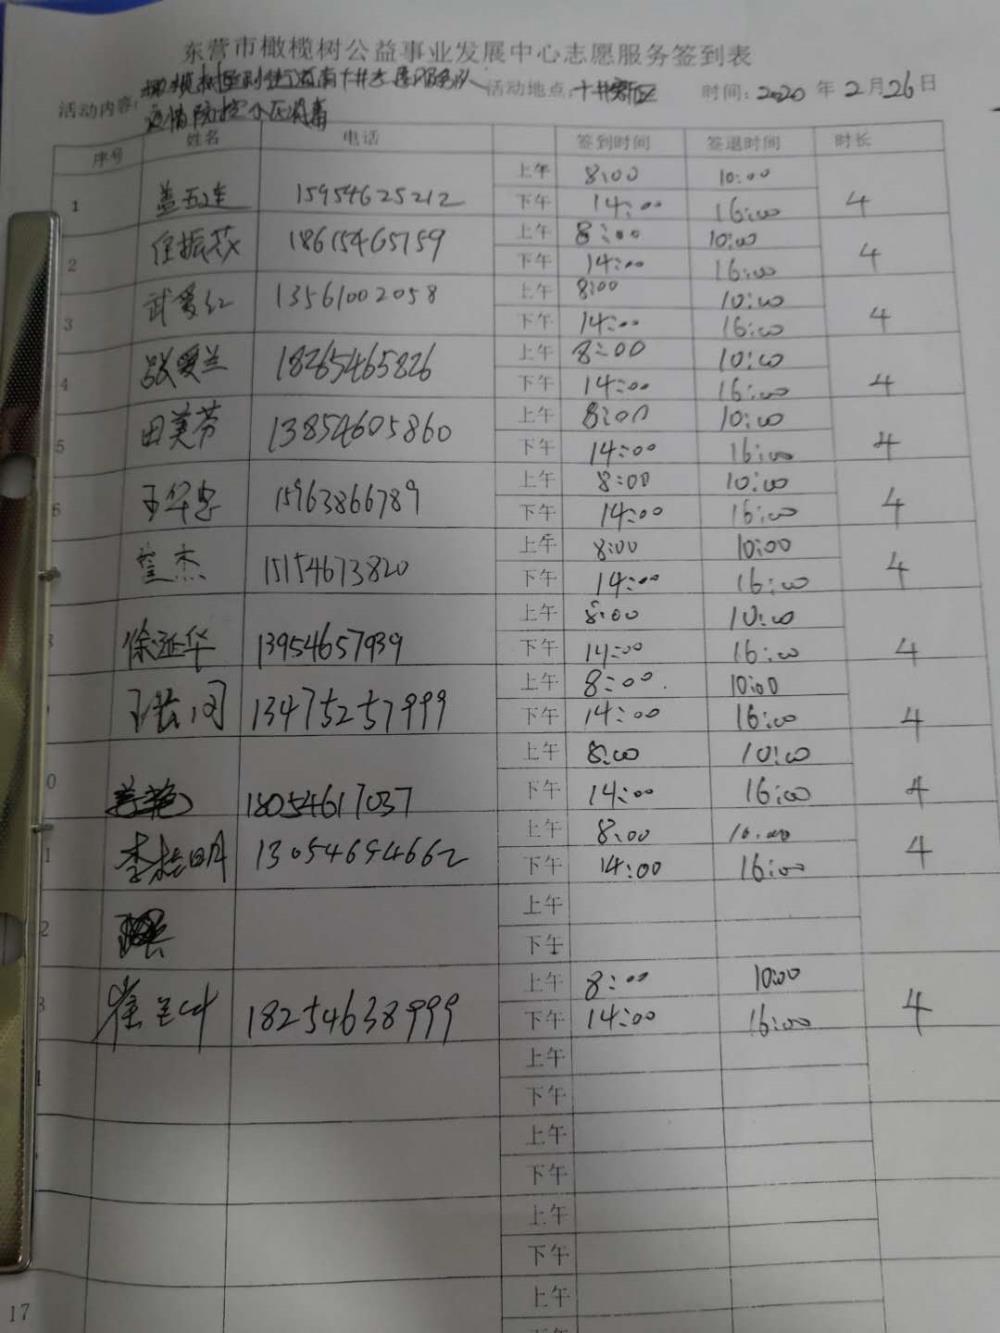 东营市橄榄树公益事业发展中心志愿服务签到表
活动内容: 活动地点: 时间: 2020 年 2 月 26 日
疫情防控小区消毒
序号 姓名 电话 签到时间 签退时间 时长
上午 8:00 10:00
1 15954625212 下午 14:00 16:00 4
上午 8:00 10:00
2 任振 18615465759 下午 14:00 16:00 4
上午 8:00 10:00
3 武爱红 13561002058 下午 14:00 16:00 4
上午 8:00 10:00
4 爱兰 18265465826 下午 14:00 16:00 4
上午 8:00 10:00
5 田美芳 13854605860 下午 14:00 16:00 4
上午 8:00 10:00
6 王华忠 15963866789 下午 14:00 16:00 4
上午 8:00 10:00
杰 15154673820 下午 14:00 16:00 4
上午 8:00 10:00
徐延华 13954657939 下午 14:00 16:00 4
上午 8:00 10:00
13475257999 下午 14:00 16:00 4
上午 8:00 10:00
0 18054617037 下午 14:00 16:00 4
上午 8:00 10:00
1 李 明 13054694662 下午 14:00 16:00 4
上午
2 下午
上午 8:00 10:00
3 崔兰 18254638999 下午 14:00 16:00 4
上午
下午
上午
下午
上午
下午
上午
17 下午